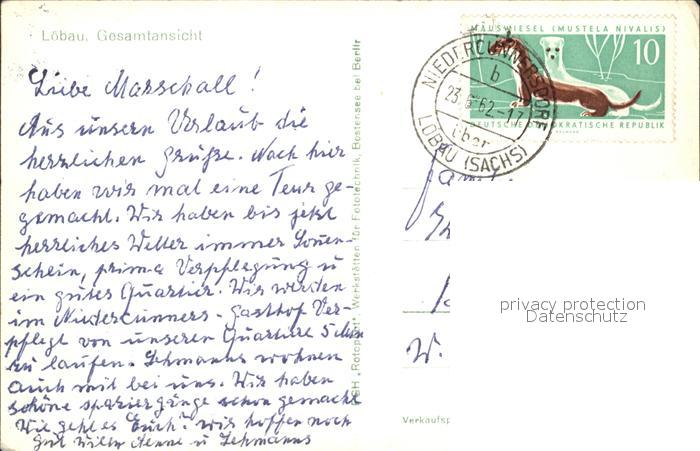 Löbau, Gesamtansicht
Liebe Marschall!
Aus unsern Urlaub die
herzlichen Grüße. Nach hier
haben wir mal eine Tour ge-
gemacht. Wir haben bis jetzt
herrliches Wetter immer Sonnen-
schein, prima Verpflegung u
ein gutes Quartier. Wir werden
im Niedercunners- Gasthof Ver-
pflegt von unseren Quartiere 5 Min
zu laufen. Lehmanns wohnen
auch mit bei uns. Wir haben
schöne spaziergänge schon gemacht
Wie geht es Euch? wir hoffen noch
gut Willy Aenne u Lehmanns
PGH „Rotophot“, Werkstätten für Fototechnik, Bestensee bei Berlin
MAUSWIESEL (MUSTELA NIVALIS)
10
DEUTSCHE DEMOKRATISCHE REPUBLIK
NIEDERCUNNERSDORF
b
23. 6. 62-17
über
LÖBAU (SACHS)
Fam.
W.
Verkaufsp
privacy protection
Datenschutz